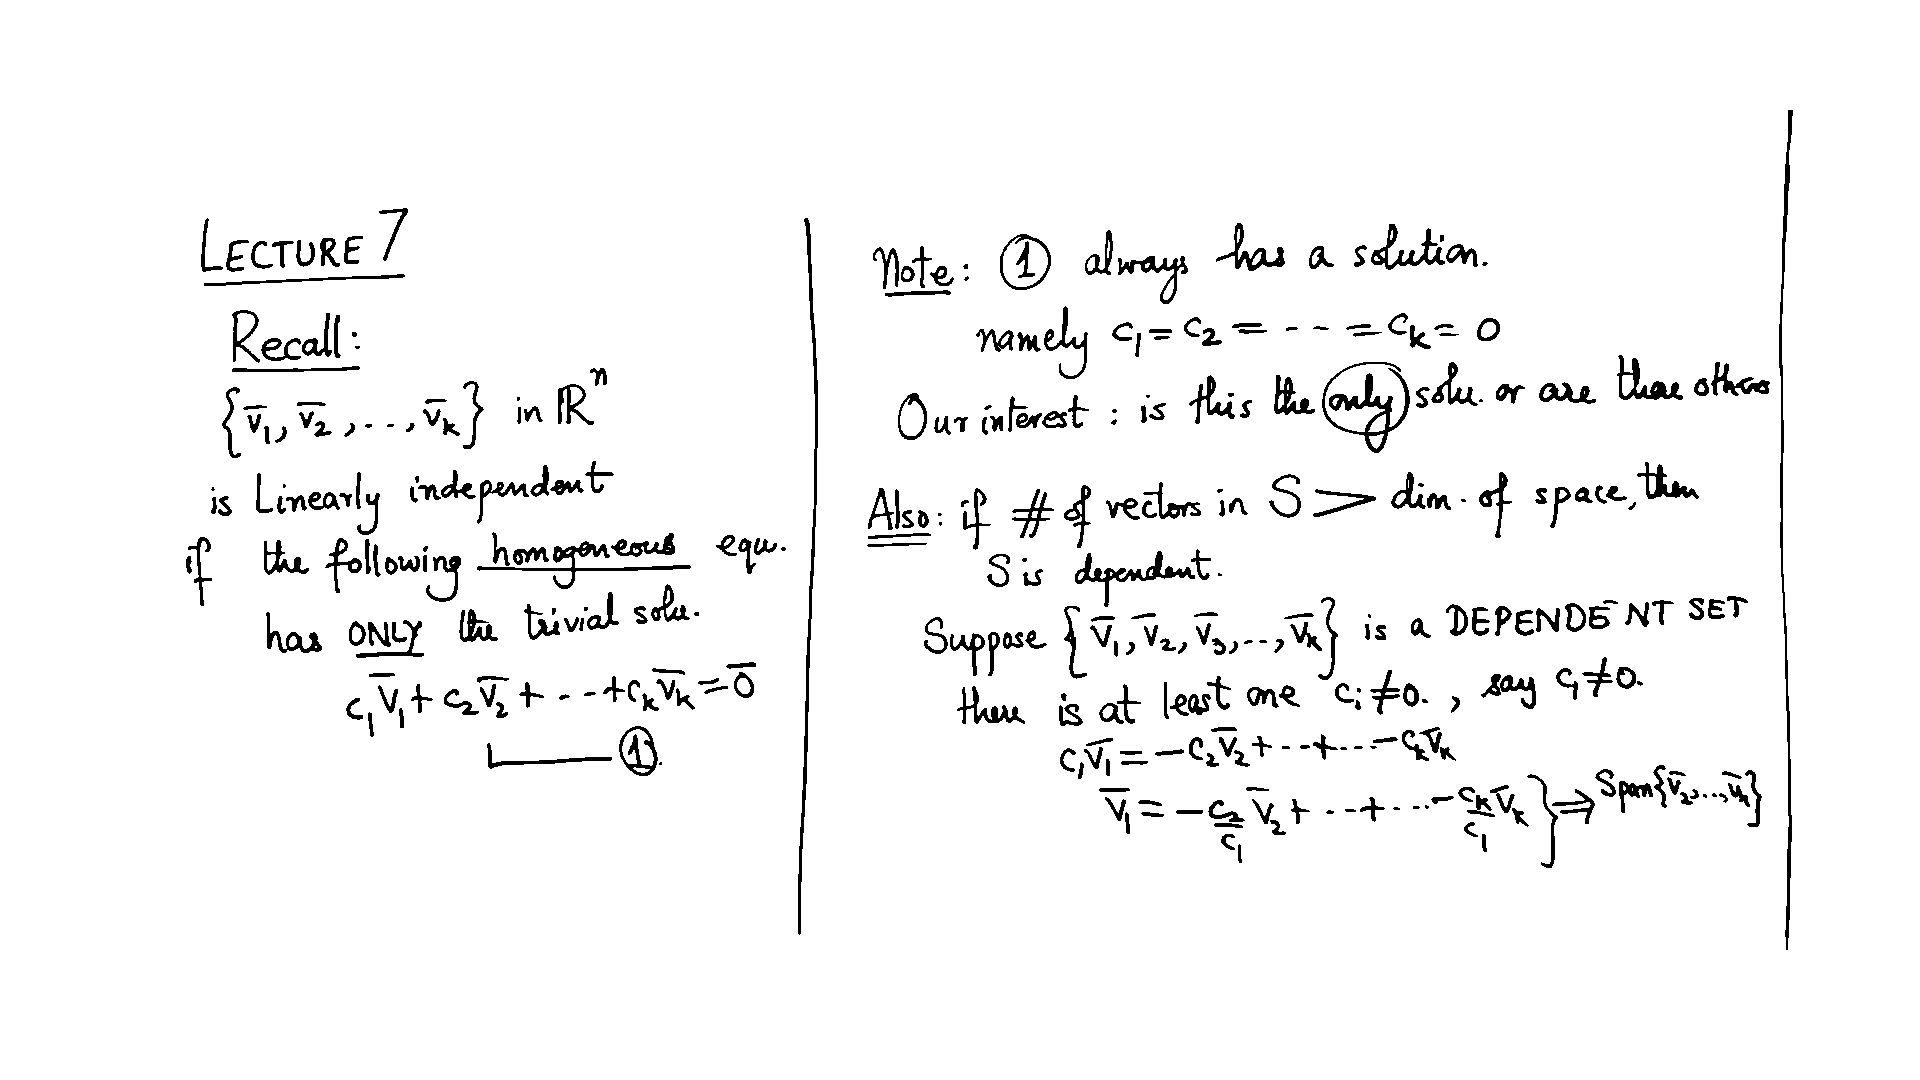 LECTURE 7
Recall:
{v̄₁, v̄₂, ..., v̄ₖ} in ℝⁿ
is Linearly independent
if the following homogeneous equ.
has ONLY the trivial solu.
c₁v̄₁ + c₂v̄₂ + ... + cₖv̄ₖ = 0̄
①
Note: ① always has a solution.
namely c₁ = c₂ = - - - = cₖ = 0
Our interest : is this the only solu. or are there others
Also: if # of vectors in S > dim. of space, then
S is dependent.
Suppose {v̄₁, v̄₂, v̄₃, ..., v̄ₖ} is a DEPENDENT SET
there is at least one cᵢ ≠ 0. , say c₁ ≠ 0.
c₁v̄₁ = -c₂v̄₂ + ... + ... - cₖv̄ₖ
v̄₁ = -c₂/c₁ v̄₂ + ... + ... - cₖ/c₁ v̄ₖ } ⇒ Span{v̄₂, ..., v̄ₖ}